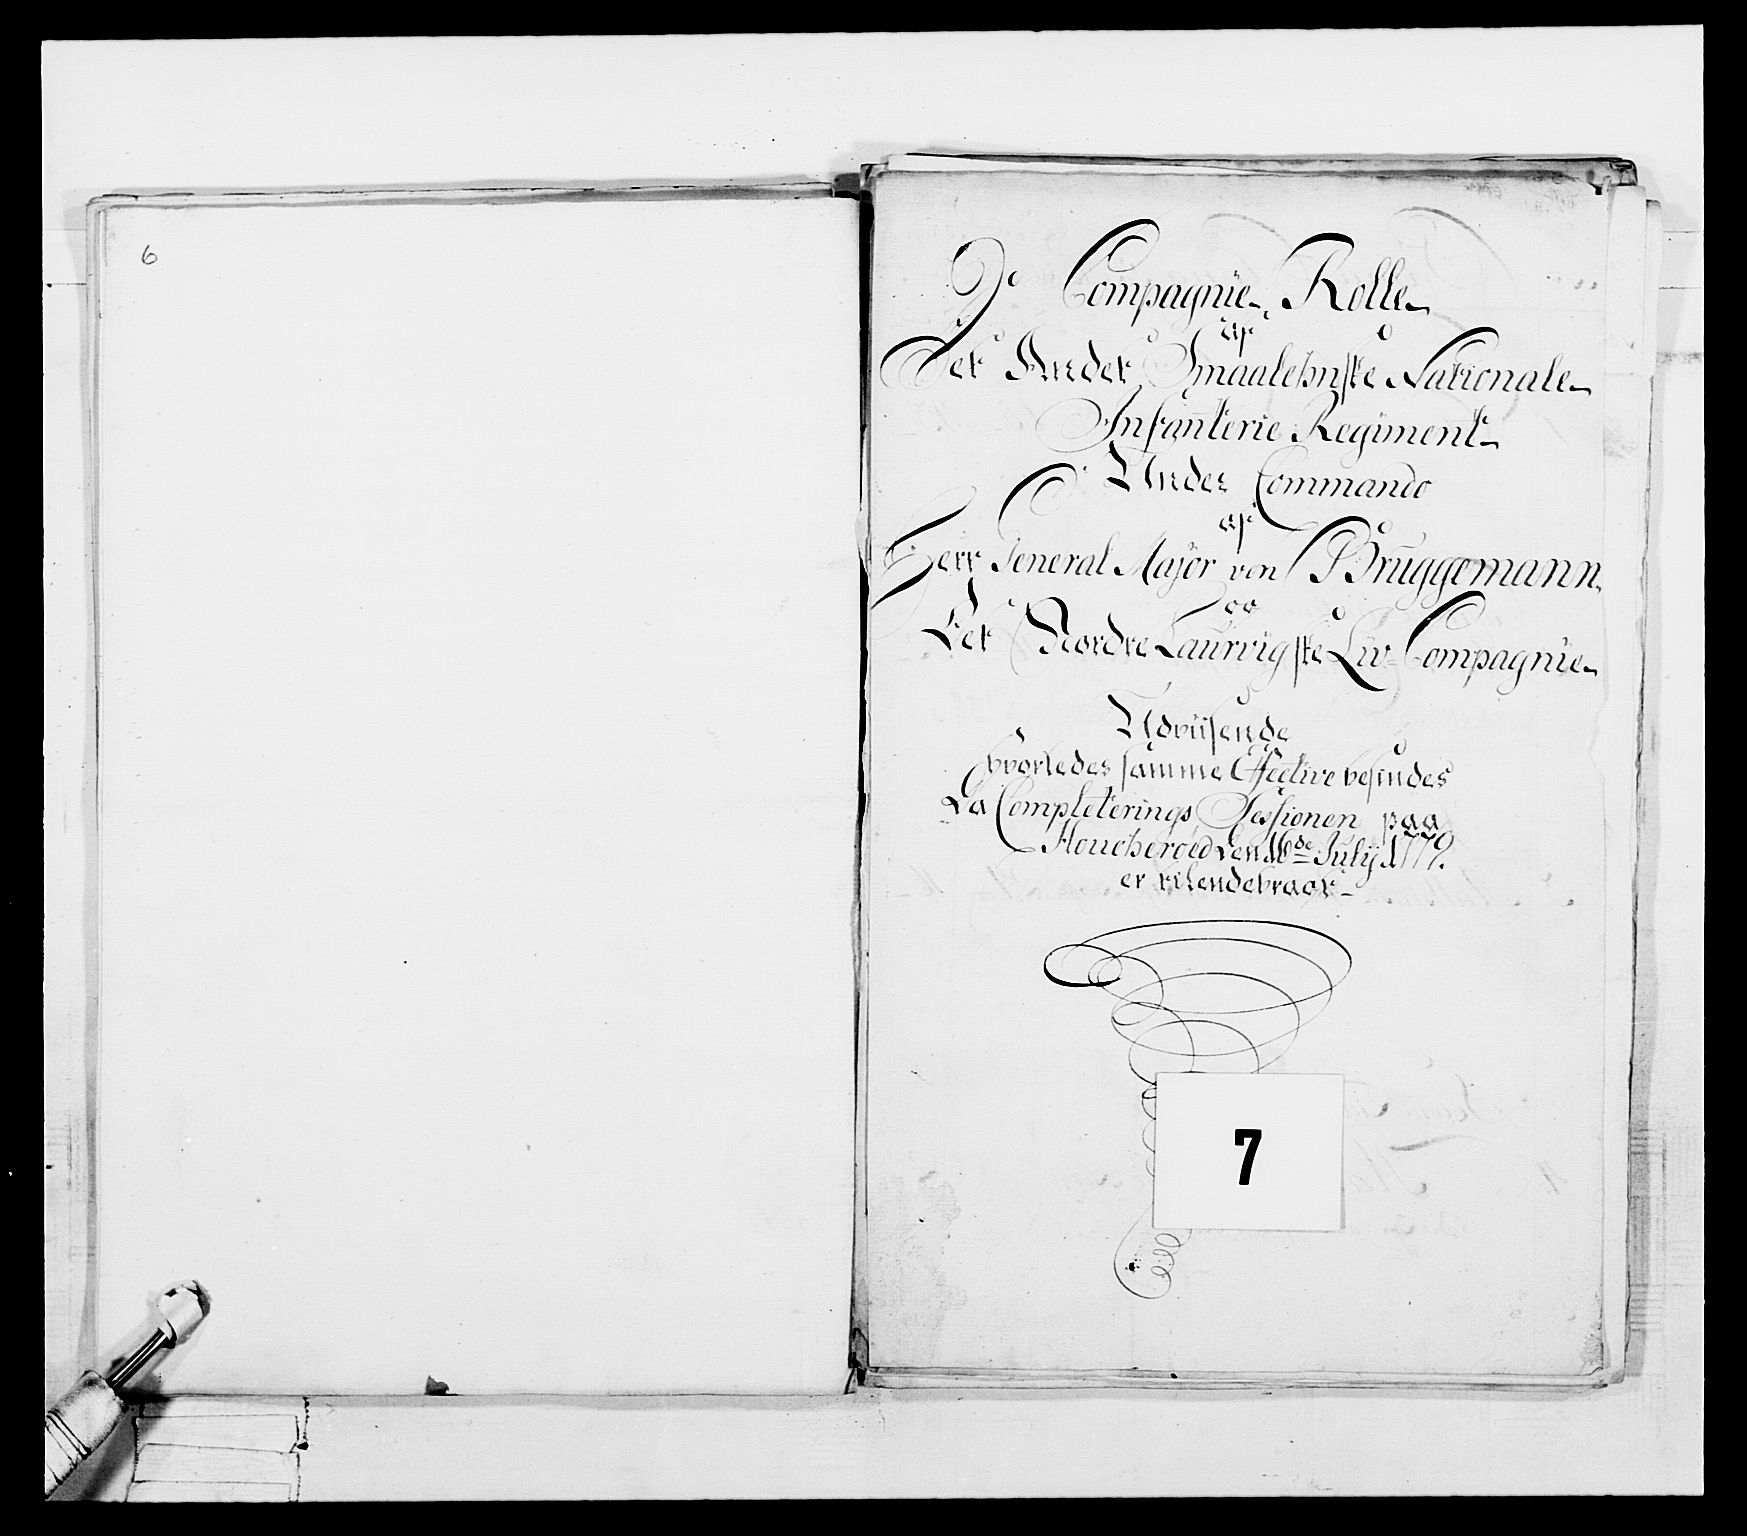 6
Compagnie Rolle
af
Det Andet Smaalehnske Nationale
Infanterie Regiment
Under Commando
af
Herr General Major von Brüggemann
og
Det Nordre Laurvigske Liv Compagnie
Udviisende
hvorledes samme Effective befindes
Da Completerings Sessionen paa
den 16de July 1779.
er tilendebragt
7